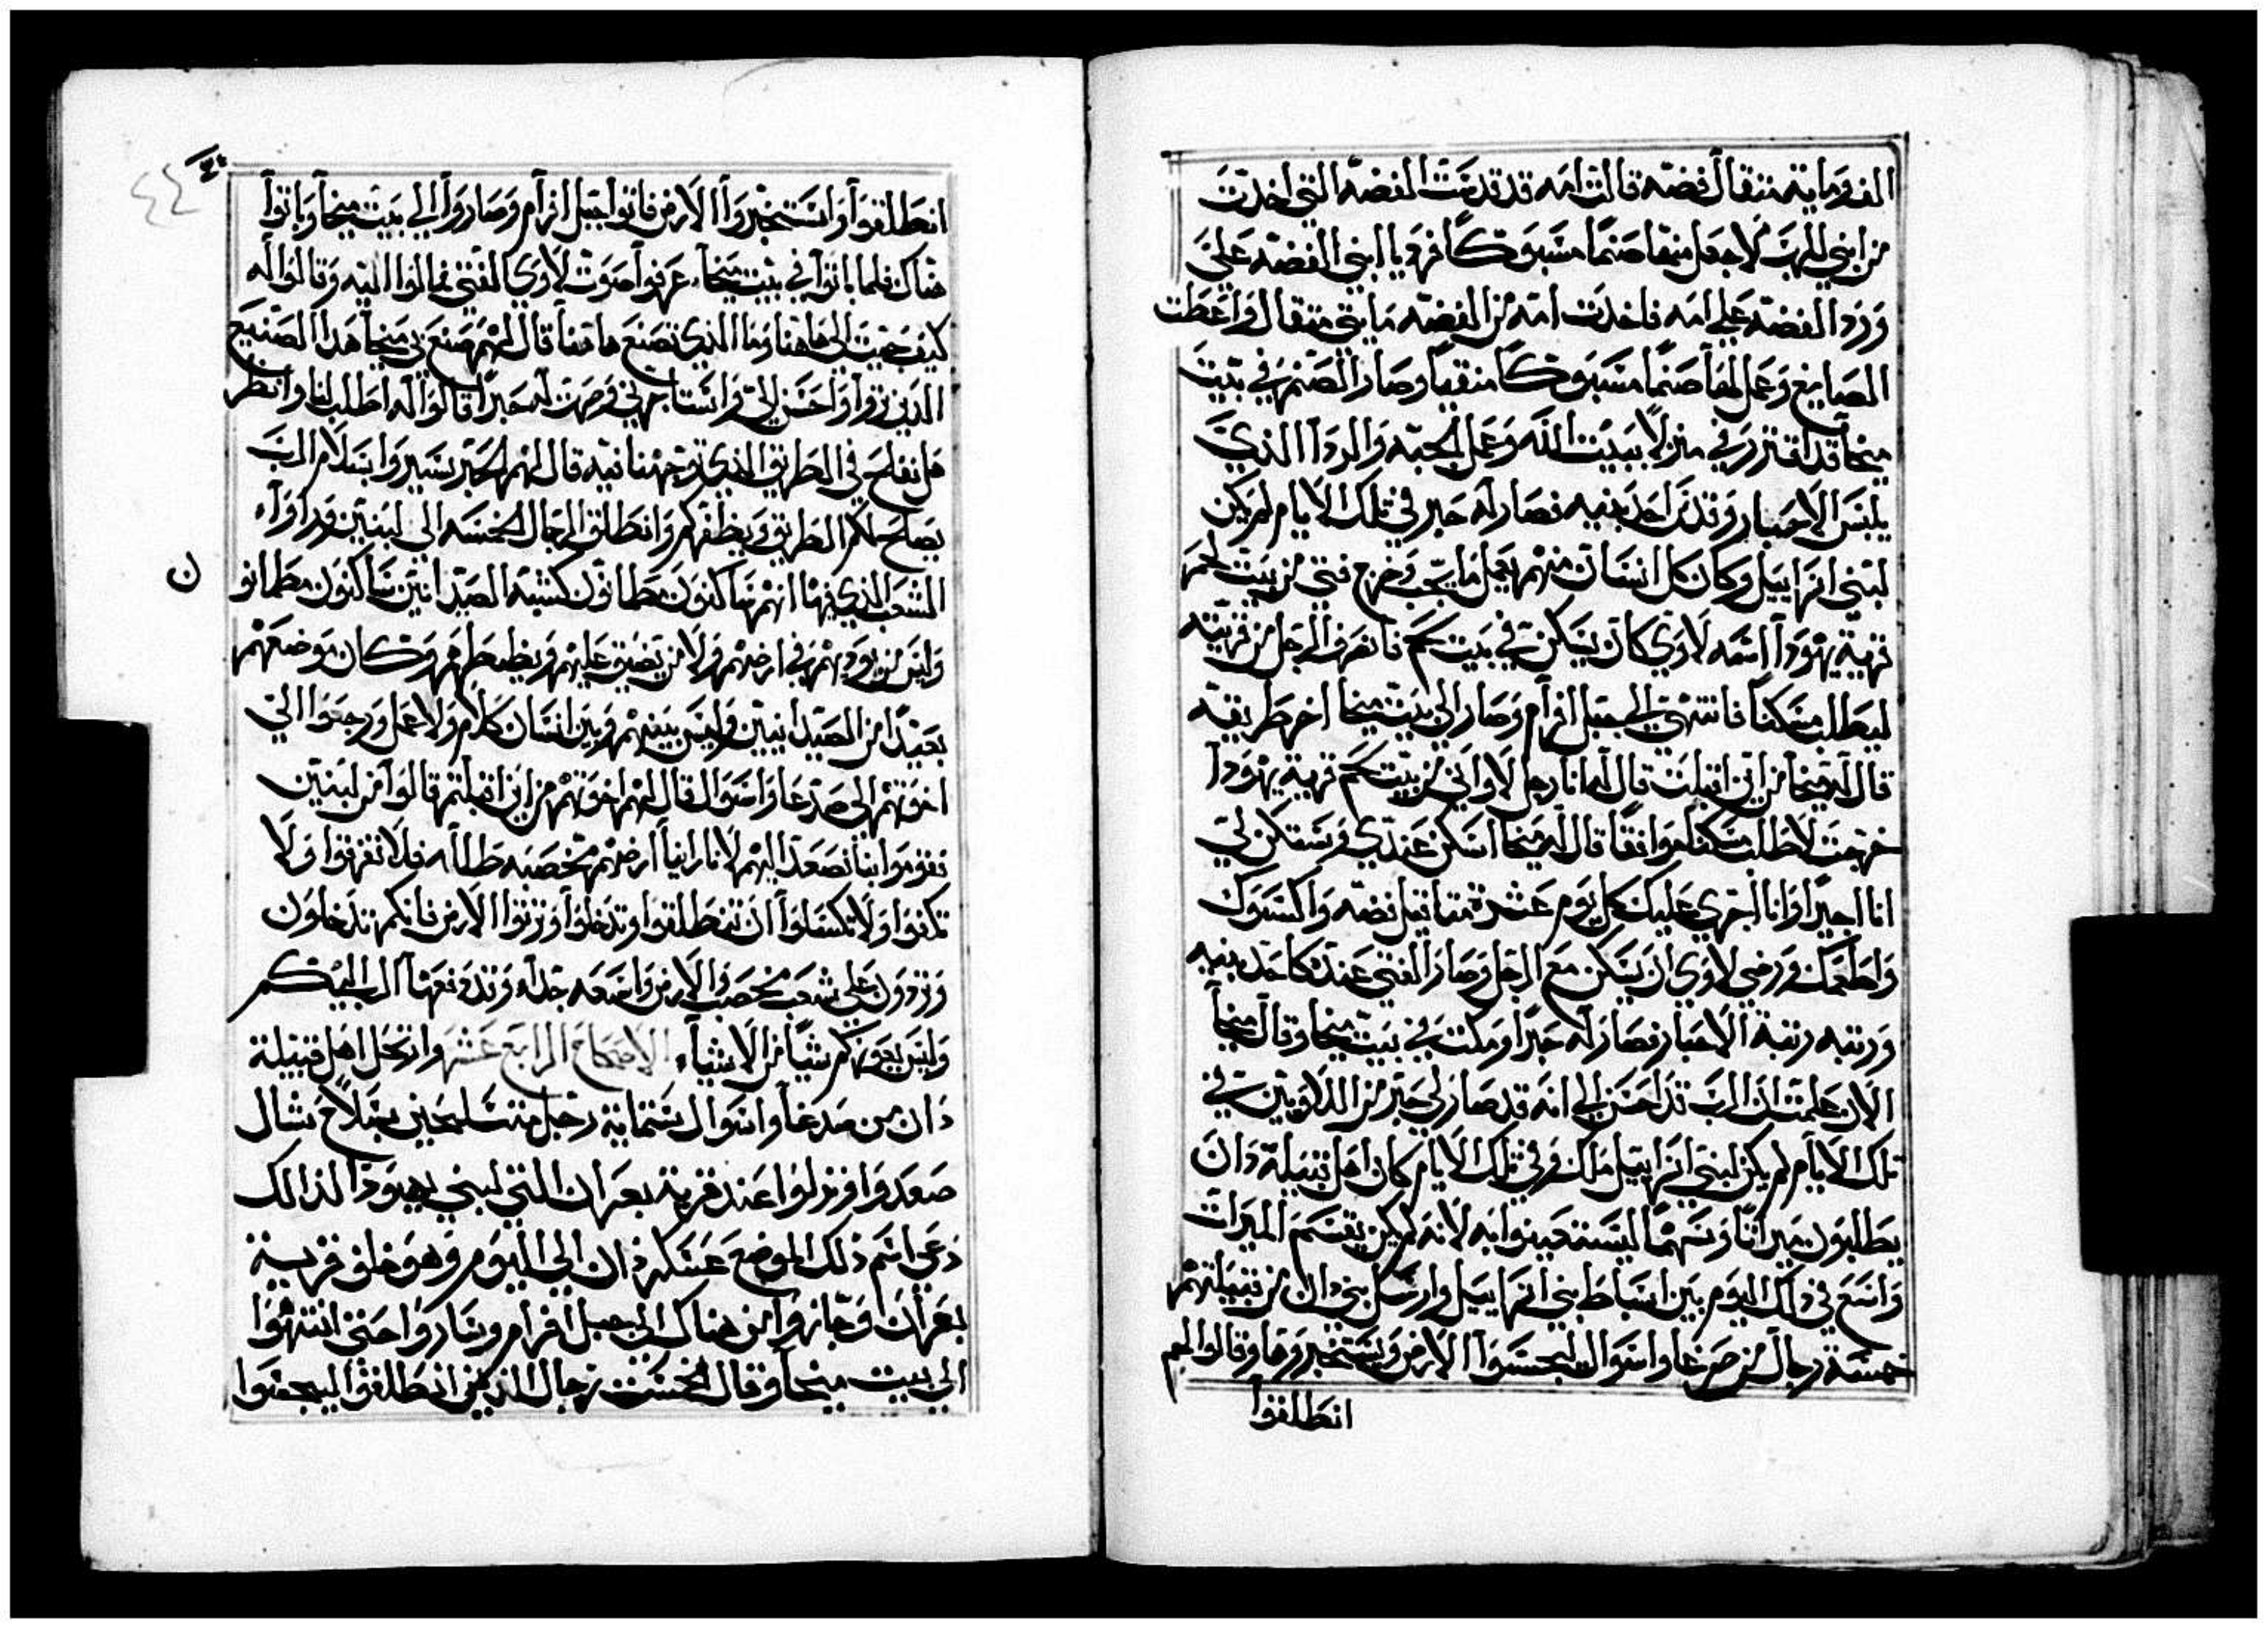 الف وماية متقال فضه قالت امه قد قدست الفضه التي اخدت
من ابني للرب لاجعل منها صنمًا مسبوكًا فهو يا ابني الفضه علي
ورد الفضه علي امه فاخدت امه من الفضه مايتي متقال واعطت
الصايغ وعمل لها صنمًا مسبوكًا منقيا وصار الصنم في بيت
ميخا قد افترز في منزلاً ببيت الله وعمل الجبه والردا الذي
يلبس الاحبار وقدس احد بنيه فصار له حبر في تلك الايام لم يكن
لبني اسراييل وكان كل انسان منهم يعمل ما يحب وخرج فتي من بيت لحم
قرية يهودا اسمه لاوي كان يسكن في بيت لحم فانصرف الرجل من قريته
ليطلب مسكناً فانتهي الي جبل افرام وصار الي بيت ميخا اخر طريقه
قال له ميخا من اين اقبلت قال له انا رجل لاواني من بيت لحم قرية يهودا
خرجت لاطلب مسكنا موافقا قال له ميخا اسكن عندي وستكن لي
انا اجيرا وانا اجري عليك كل يوم عشرة متاقيل فضه واكسوك
واطعمك ورضي لاوي ان يسكن مع الرجل وصار الفتي عنده كاحد بنيه
ورتبه رتبة الاحبار فصار له حبرا ومكت في بيت ميخا وقال ميخا
الان علمت ان الرب قد احسن الي انه قد صار لي حبر من اللاويين في
تلك الايام لم يكن لبني اسراييل ملك وفي تلك الايام كان اهل قبيلة دان
يطلبون ميراتا وسهما ليستعينوا به لانه لم يكن يقسم الميرات
واتسع في ذلك اليوم بين اسباط بني اسراييل وارسل بني دان من قبيلتهم
خمسة رجال من صرعا واسوال ليجسوا الارض ويستخبروها وقالوا لهم
انطلقوا
انطلقوا واستخبروا الارض فاتوا جبل افرام وصاروا الي بيت ميخا وباتوا
هناك فلما باتوا في بيت ميخا عرفوا صوت لاوي الفتي فمالوا اليه وقالوا له
كيف جيت الي هاهنا وما الذي تصنع هاهنا قال لهم صنع بي ميخا هدا الصنيع
الدي تروا واحسن الي واستاجرني وصرت له حبرًا قالوا له اطلب لنا وانظر
هل نفلح في الطريق الذي توجهنا فيه قال لهم الحبر سيروا بسلام الرب
يصلح لكم الطريق ويظفركم وانطلق الرجال الخمسه الي لبنين وراوا
الشعب الذي فيها انهم ساكنون مطمانون كشبه الصيدانين ساكنون مطمانو
ن
وليس من يوديهم في ارضهم ولا من يضيق عليهم ويظبطهم وكان موضعهم
بعيدًا من الصيدانيين وليس بينهم وبين انسان كلام ولا عمل ورجعوا الي
اخوتهم الي صرعا واسوال قال لهم اخوتهم من اين اقبلتم قالوا من لبنين
فقوموا بنا نصعد اليهم لانا راينا ارضهم مخصبه فلا تغرقوا ولا
تكفوا ولا تكسلوا ان تنطلقوا وتدخلوا وترتوا الارض فانكم تدخلون
وتردون علي شعب مخصب والارض واسعه جدا وقد دفعها الرب اليكم
وليس يعوزكم شيا من الاشيا الاصحاح الرابع عشر وارتحل اهل قبيلة
دان من صرعا واسوال ستماية رجل متسلحين بسلاح شال
صعدوا ونزلوا عند قرية بعران التي لبني يهودا لذالك
دعي اسم ذلك الموضع عسكر دان الي اليوم وهو خلف قرية
بعران وجازوا من هناك الي جبل افرام وساروا حتي انتهوا
الي بيت ميخا وقال الخمست رجال الذين انطلقوا ليجسوا